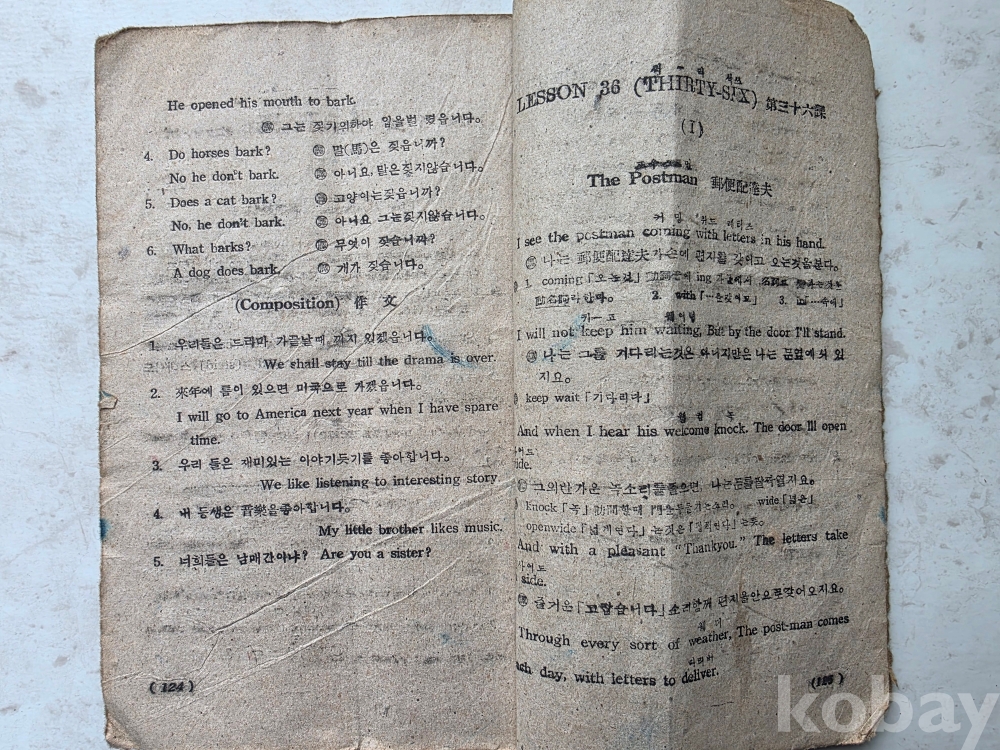 He opened his mouth to bark.
㊟ 그는 짖기위하야 입을벌렸읍니다。
4. Do horses bark? ㊟ 말(馬)은 짖읍니까?
No he don't bark. ㊟ 아니요, 말은짖지않습니다。
5. Does a cat bark? ㊟ 고양이는짖읍니까?
No, he don't bark. ㊟ 아니요 그는짖지않습니다。
6. What barks? ㊟ 무엇이 짖습니까?
A dog does bark. ㊟ 개가 짖습니다。
(Composition) 作 文
1. 우리들은 드라마 가끝날때 까지 있겠읍니다。
We shall stay till the drama is over.
2. 來年에 틈이 있으면 미국으로 가겠읍니다。
I will go to America next year when I have spare
time.
3. 우리 들은 재미있는 이야기듯기를 좋아합니다。
We like listening to interesting story
4. 내 동생은 音樂을좋아합니다。
My little brother likes music.
5. 너희들은 남매간이냐? Are you a sister?
( 124 )
LESSON 36 (THIRTY-SIX) 第三十六課
(I)
The Postman 郵便配達夫
커밍 위드 레터스
I see the postman coming with letters in his hand.
나는 郵便配達夫가손에 편지를 갖이고 오는것을본다。
1. coming「오는것」 ing
2. with 3. in
I will not keep him waiting, But by the door I'll stand.
나는 그를 기다리는것은 아니지만은 나는 문옆에 서 있
지요。
keep wait「기다리다」
웰컴 녹
And when I hear his welcome knock. The door Ill open
side.
knock「녹」訪問할때 wide「넓은」
openwide
And with a pleasant "Thankyou." The letters take
side.
즐거운「고맙습니다」소리함께 편지을안으로맞어오지요。
Through every sort of weather, The post-man comes
ach day, with letters to deliver.
(125)
kobay